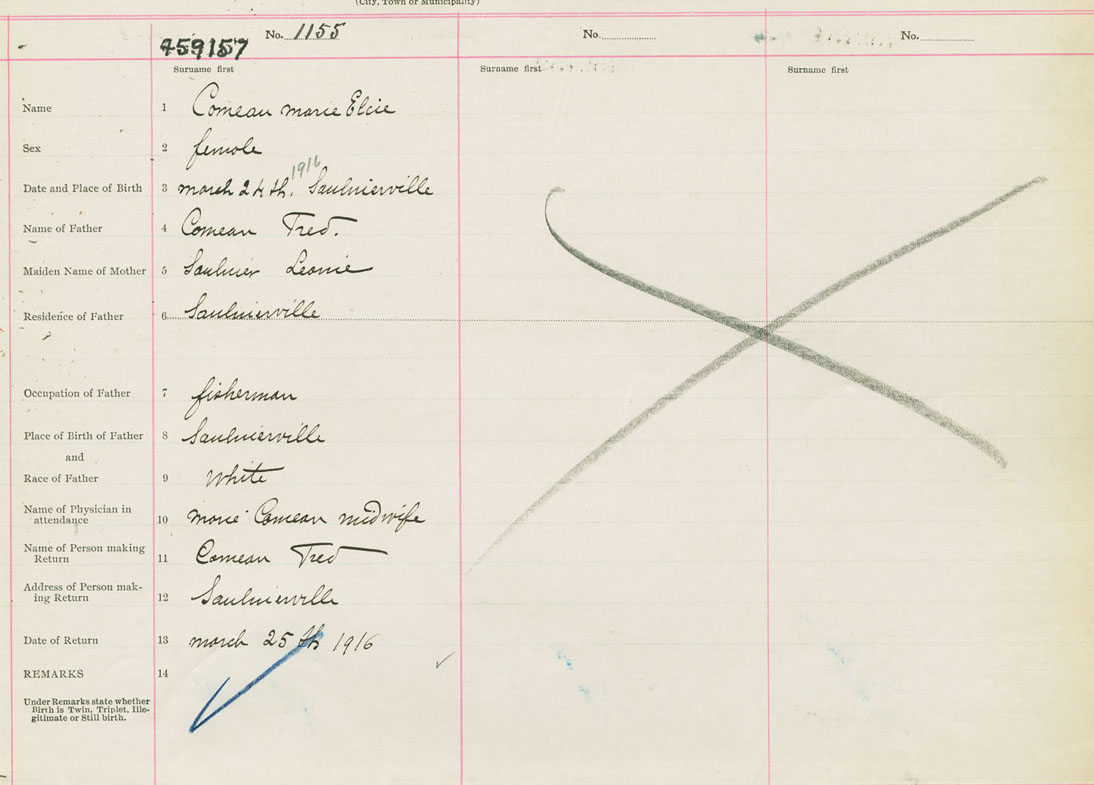 (City, Town or Municipality)
459157 No. 1155 No. No.
Surname first Surname first Surname first
Name 1 Comeau marie Elcie
Sex 2 female
1916
Date and Place of Birth 3 march 24 th. Saulnierville
Name of Father 4 Comeau Fred.
Maiden Name of Mother 5 Saulnier Leonie
Residence of Father 6 Saulnierville
Occupation of Father 7 fisherman
Place of Birth of Father 8 Saulnierville
and
Race of Father 9 White
Name of Physician in
attendance 10 marie Comeau midwife
Name of Person making
Return 11 Comeau Fred
Address of Person mak-
ing Return 12 Saulnierville
Date of Return 13 march 25 th 1916
REMARKS 14
Under Remarks state whether
Birth is Twin, Triplet, Ille-
gitimate or Still birth.